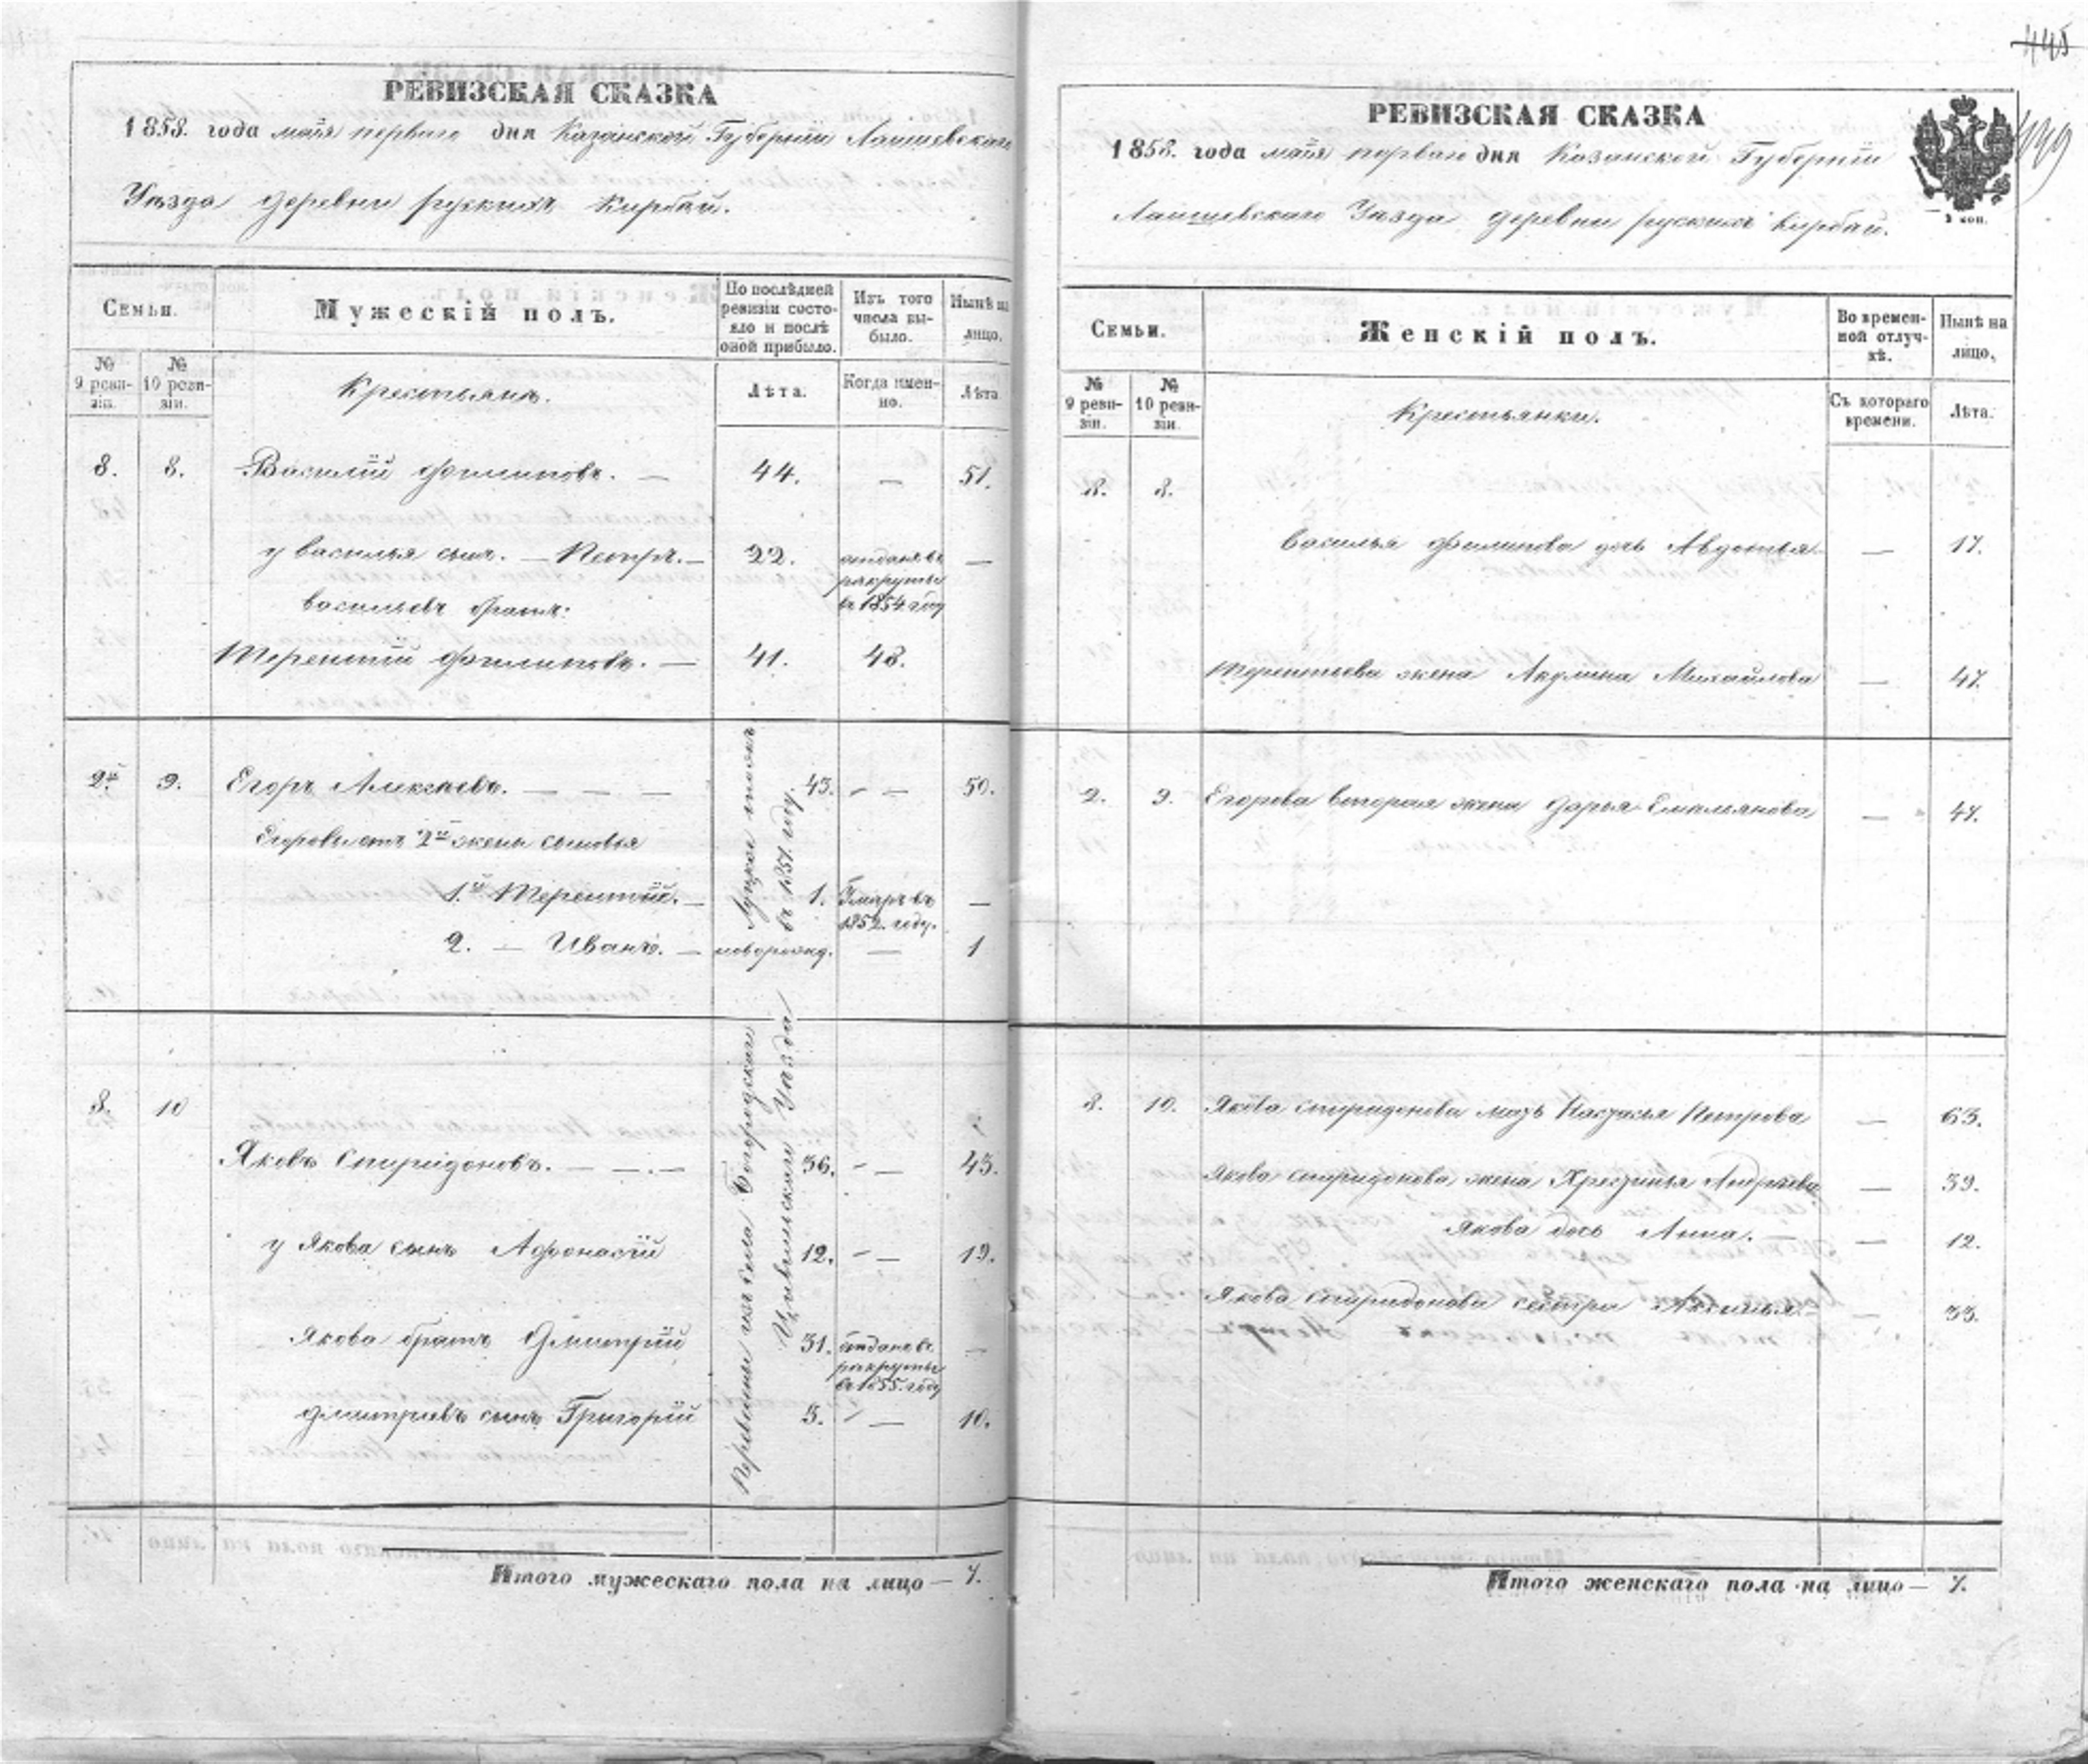 РЕВИЗСКАЯ СКАЗКА
1858. года майя перваго дня Казанской Губернiи Лаишевскаго
Уезда деревни русскихъ Кирбай.
Семьи.
Мужескiй полъ.
По послѣдней ревизiи состояло и послѣ оной прибыло.
Изъ того числа выбыло.
Нынѣ на лицо.
№ 9 ревизiи.
№ 10 ревизiи.
Крестьянъ.
Лѣта.
Когда именно.
Лѣта
8. 8. Василiй Филиповъ. — 44. — 51.
у Василья сынъ. — Петръ. — 22. отданъ въ рекруты въ 1854 году —
Васильевъ братъ:
Терентiй Филиповъ. — 41. 48.
2й 9. Егоръ Алексѣевъ. — — — 43. — — 50.
Егоровы отъ 2й жены сыновья
1й Терентiй. — 1. Умеръ въ 1852. году. —
2. — Иванъ. — новорожд. — 1
въ 1851. году.
8. 10
Яковъ Спиридоновъ. — — . — 36. — — 43.
у Якова сынъ Афонасiй 12. — — 19.
Якова братъ Дмитрiй 31. отданъ въ рекруты въ 1855. году —
Дмитрiевъ сынъ Григорiй 3. — — 10.
изъ села Богородскаго
Цивильскаго Уезда
Итого мужескаго пола на лицо — 7.
445
449
РЕВИЗСКАЯ СКАЗКА
1858. года майя перваго дня Казанской Губернiи
Лаишевскаго Уезда деревни русскихъ Кирбай.
3 коп.
Семьи.
Женскiй полъ.
Во временной отлучкѣ.
Нынѣ на лицо,
№ 9 ревизiи.
№ 10 ревизiи.
Крестьянки.
Съ котораго времени.
Лѣта.
8. 8.
Василья Филипова дочь Авдотья — 17.
Терентьева жена Акулина Михайлова — 47.
2. 9. Егорова вторая жена Дарья Емельянова — 47.
8. 10. Якова Спиридонова мать Настасья Петрова — 63.
Якова Спиридонова жена Хрестинья Андрѣева — 39.
Якова дочь Анна. — — 12.
Якова Спиридонова сестра Аксинья. — 33.
Итого женскаго пола на лицо — 7.